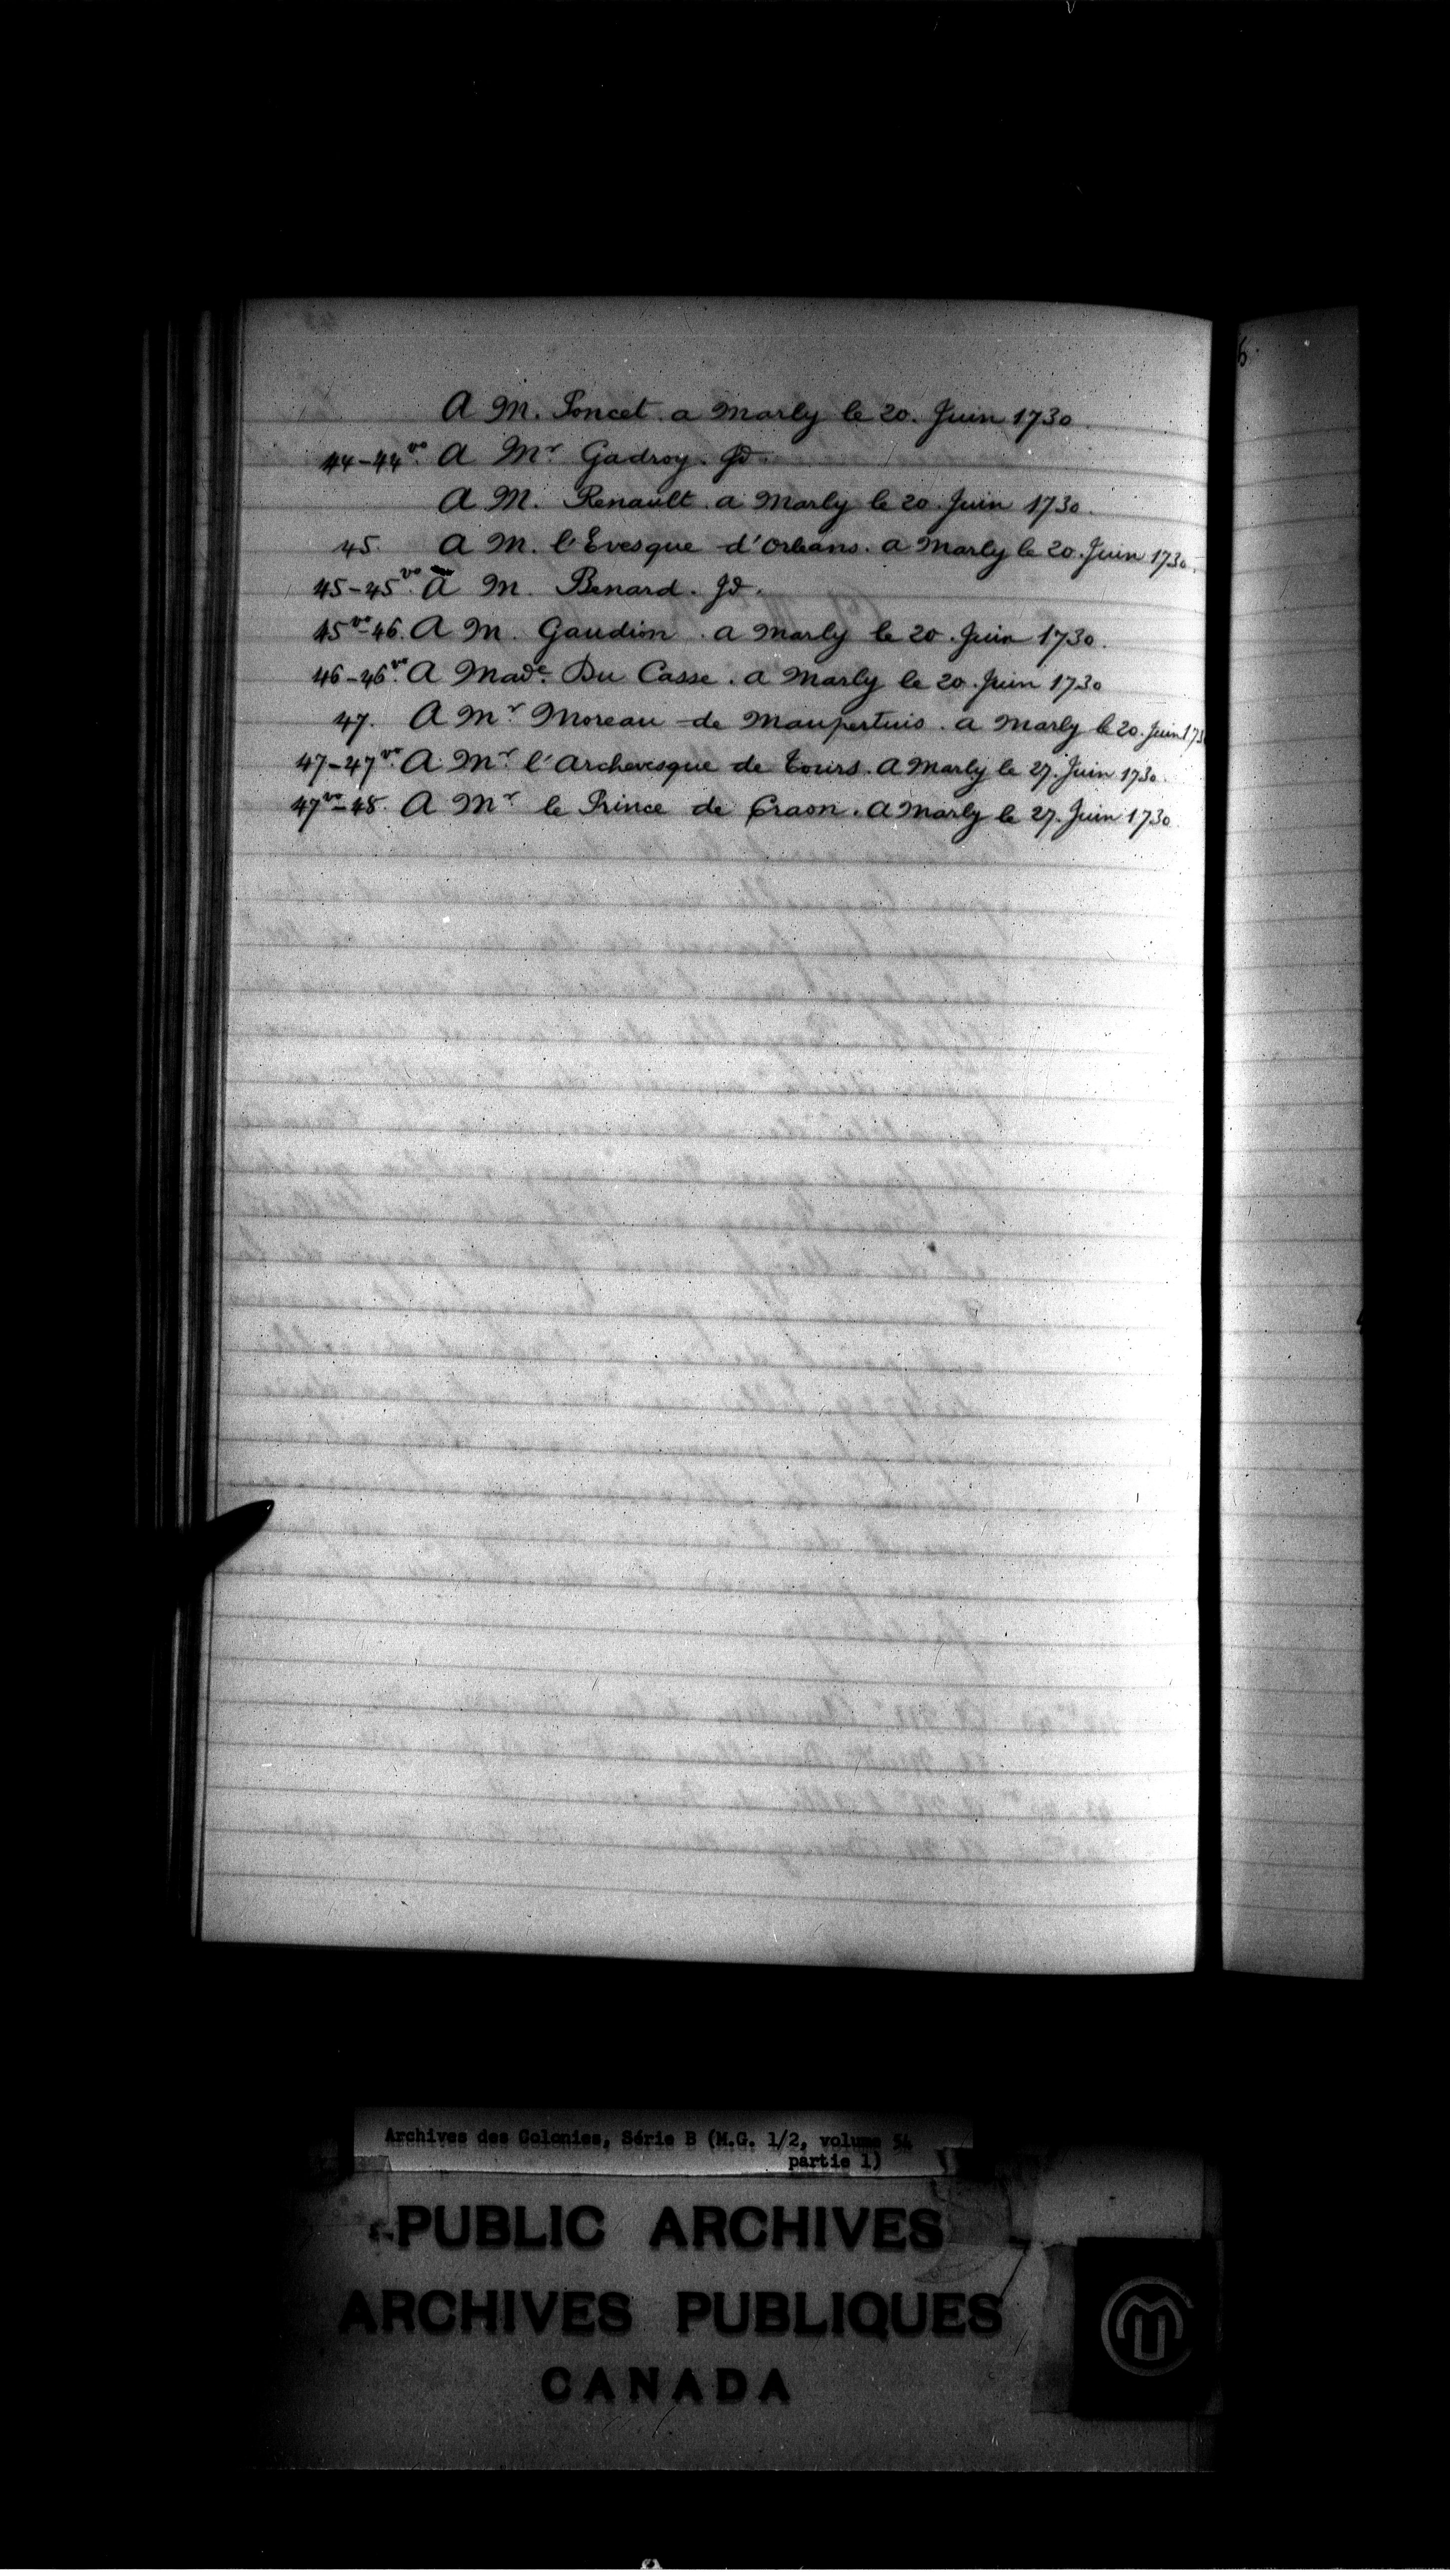 A M. Poncet. a Marly le 20. Juin 1730
44-44vo. A Mr Gadroy. Jd.
A M. Renault. a Marly le 20. Juin 1730.
45. A M. l'Evesque d'Orleans. a Marly le 20. Juin 1730.
45-45vo. A M. Benard. Jd.
45vo-46. A M. Gaudion. a Marly le 20. Juin 1730.
46-46vo. A Made. Du Casse. a Marly le 20. Juin 1730
47. A Mr Moreau de Maupertuis. a Marly le 20. Juin 173
47-47vo. A Mr l'Archevesque de Tours. A Marly le 27. Juin 1730.
47vo-48. A Mr le Prince de Craon. A Marly le 27. Juin 1730.
Archives des Colonies, Série B (M.G. 1/2, volume 54
partie 1)
PUBLIC ARCHIVES
ARCHIVES PUBLIQUES
CANADA